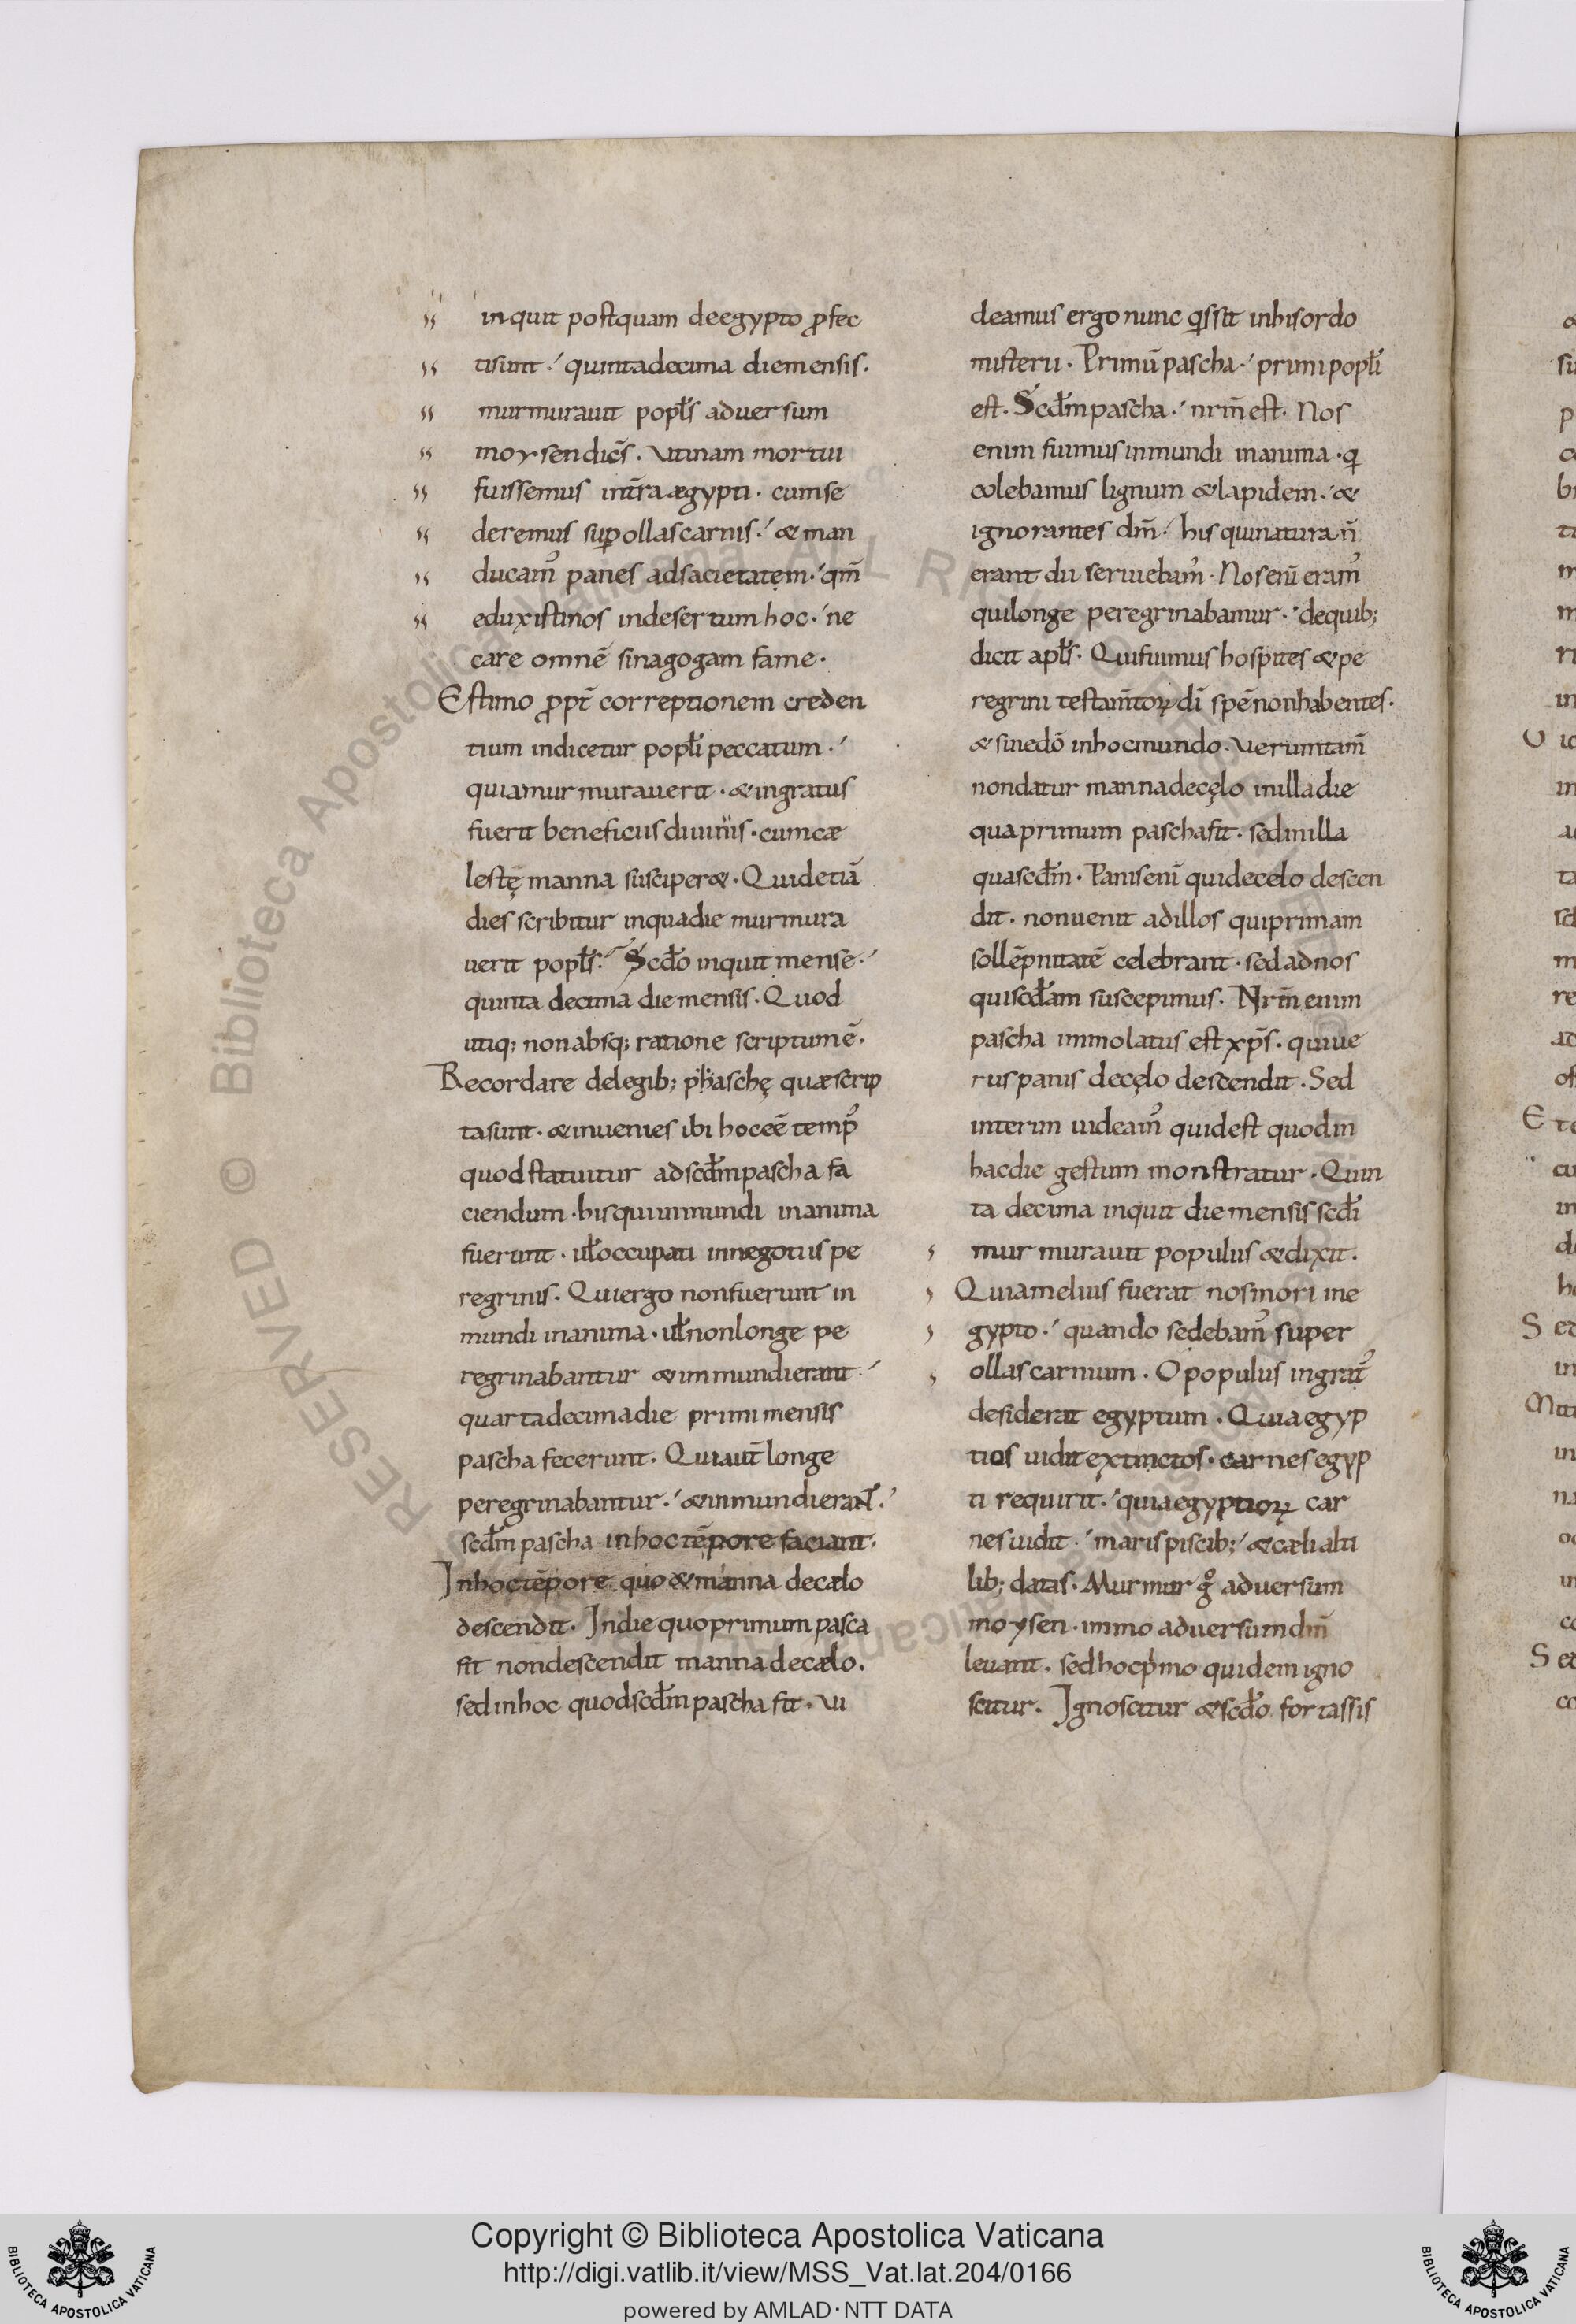 inquit postquam deegypto ꝓfec
tisunt·ˊ quintadecima diemensis·
murmurauit popƚs aduersum
moysendicēs· Utinam mortui
fuissemus int̄ra ægypti· cumse
deremus suꝑollascarnis·ˊ & man
ducam᾽ panes adsacietatem·ˊ qm̄
eduxistinos indesertumhoc·ˊ ne
care omnē sinagogam fame·
Estimo ꝓpt̄ correptionem creden
tium indicetur popƚi peccatum·ˊ
quiamurmurauerit· &ingratus
fuerit beneficiisdiuinis· cumcæ
lestę manna susciper&· Quidetiā
dies scribitur inquadie murmura
uerit popƚs·ˊ Scđo inquit mense·ˊ
quinta decima diemensis· Quod
utiq; nonabsq; ratione scriptumē·
Recordare delegib; phaschę quæscrip
tasunt· &inuenies ibi hoceē temp᾽
quodstatuitur adscđmpascha fa
ciendum· hisquiinmundi inanima
fuerunt· uƚoccupati innegotiis pe
regrinis· Quiergo nonfuerunt in
mundi inanima· uƚnonlonge pe
regrinabantur &immundierant·ˊ
quartadecimadie primimensis
pascha fecerunt· Quiaut̄longe
peregrinabantur·ˊ &inmundierant·ˊ
scđm pascha inhoctēpore faciant·
Inhoctēpore quo&manna decælo
descendit· Indie quoprimum pasca
fit nondescendit manna decælo·
sedinhoc quodscđmpascha fit· Ui
deamus ergo nunc qissit inhisordo
misterii· Primūpascha·ˊ primipopƚi
est· Scđmpascha·ˊ nrm̄est· Nos
enim fuimusinmundi inanima· q
colebamus lignum &lapidem·ˊ &
ignorantes dm̄·ˊ his quinatura n̄
erant dii seruiebam᾽· Nosenī eram᾽
quilonge peregrinabamur·ˊ dequib;
dicit apƚs· Quifuimus hospites &pe
regrini testam̄toꝝ dī spēnonhabentes·
&sinedō inhocmundo· Ueruntam̄
nondatur mannadecęlo inilladie
quaprimum paschafit· sedinilla
quascđm· Panisenī quidecelo descen
dit· nonuenit adillos quiprimam
sollēpnitatē celebrant· sedadnos
quiscđam suscepimus· Nrm̄ enim
pascha immolatus est xp̄s· quiue
ruspanis decęlo descendit· Sed
interim uideam᾽ quidest quodin
hacdie gestum monstratur· Quin
ta decima inquit diemensisscđi
murmurauit populus &dixit·
Quiamelius fuerat nosmori ine
gypto·ˊ quando sedebam᾽ super
ollascarnium· Opopulus ingrat᾽
desiderat egyptum· Quiaegyp
tios uiditextinctos· carnesegyp
ti requirit·ˊ quiaegyptioꝝ car
nesuidit·ˊ marispiscib;ˊ &cæliali
lib; datas· Murmur g̊ aduersum
moysen· immo aduersumdm̄
leuant· sedhocp̍mo quidemigno
scitur· Ignoscitur &scđo fortassis
Copyright © Biblioteca Apostolica Vaticana
http://digi.vatlib.it/view/MSS_Vat.lat.204/0166
powered by AMLAD·NTT DATA
BIBLIOTECA APOSTOLICA VATICANA
BIBLIOTECA APOSTOLICA VATICANA